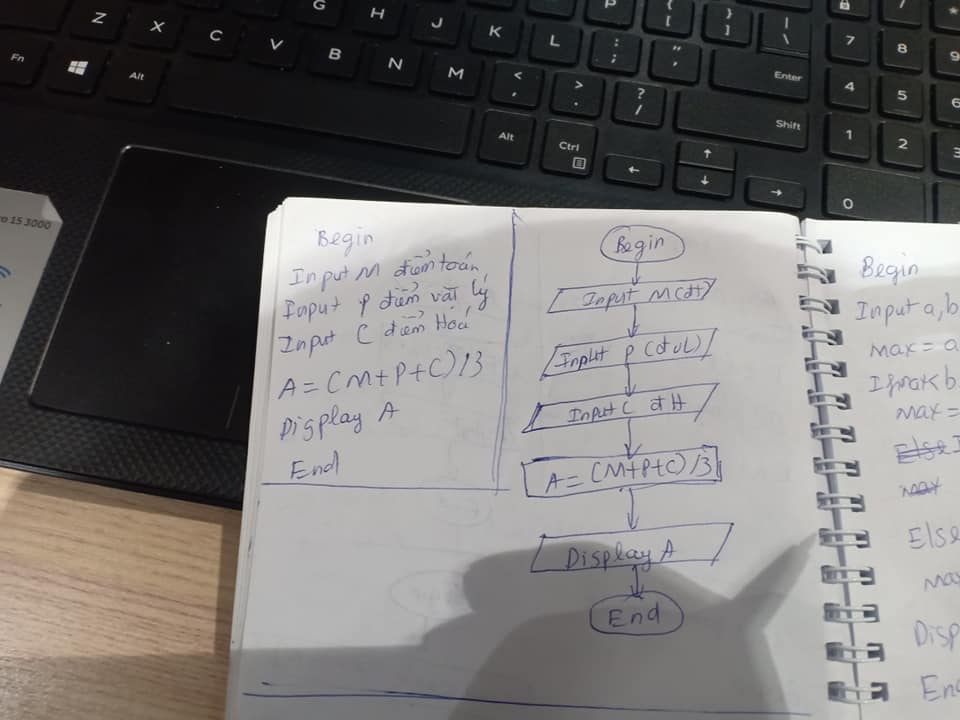 G H J K L P { [ } ] | \
Z X C V B N M < , > . : ; " ' ? / Enter
Fn Alt Alt Ctrl Shift
7 8 9
4 5 6
1 2 3
0
15 3000
Begin
Input M điểm toán
Input P điểm vật lý
Input C điểm Hoá
A = (M+P+C)/3
Display A
End
Begin
Input M(đt)
Input P (đvL)
Input C đH
A = (M+P+C)/3
Display A
End
Begin
Input a,b
max = a
If max<b
max =
Else I
max
Else
max
Disp
End